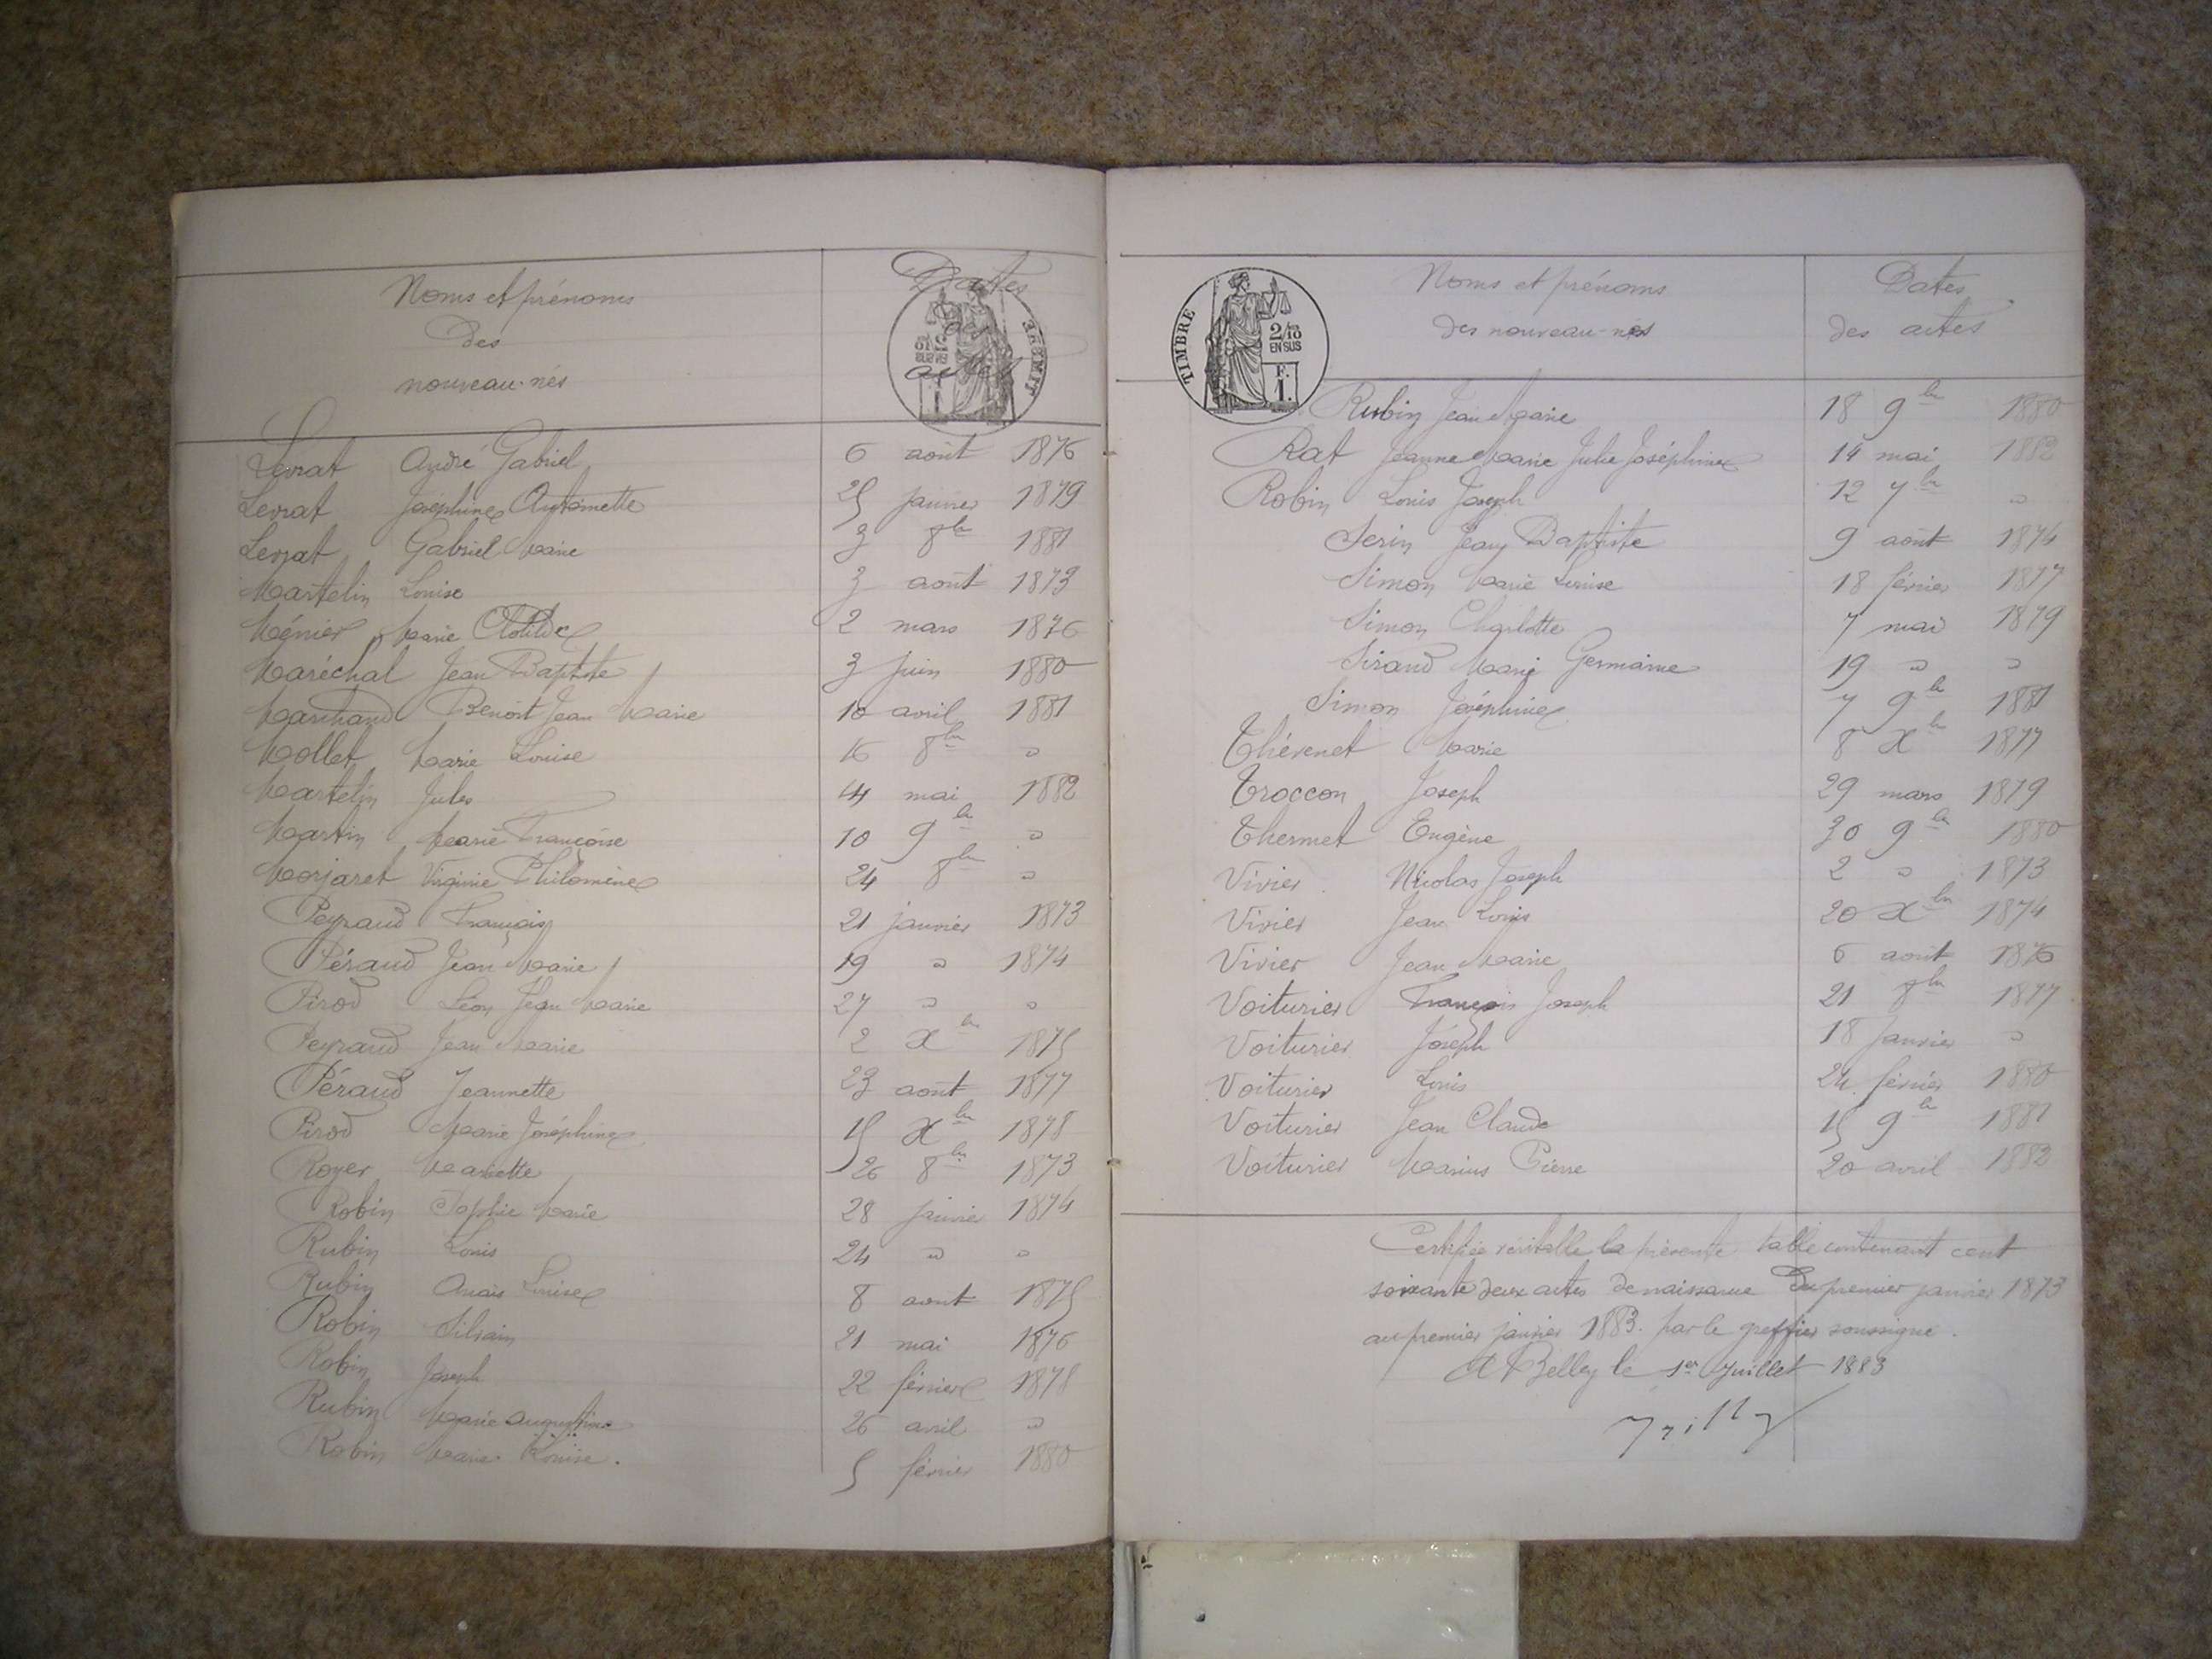 Noms et prénoms
Des
nouveau-nés
Dates
des
actes
Levrat André Gabriel 6 août 1876
Levrat Joséphine Antoinette 25 janvier 1879
Levrat Gabriel Marie 3 8bre 1881
Martelin Louise 3 août 1873
Ménier Marie Clotilde 2 mars 1876
Maréchal Jean Baptiste 3 juin 1880
Marchand Benoît Jean Marie 10 avril 1881
Mollet Marie Louise 16 8bre "
Martelin Jules 14 mai 1882
Martin Marie Françoise 10 9bre "
Morjaret Virginie Philomène 24 8bre "
Peyraud François 21 janvier 1873
Péraud Jean Marie 19 " 1874
Pirod Léon Jean Marie 27 " "
Peyraud Jean Marie 2 Xbre 1875
Péraud Jeannette 23 août 1877
Pirod Marie Joséphine 15 Xbre 1878
Royer Mariette 26 8bre 1873
Robin Sophie Marie 28 janvier 1874
Rubin Louis 24 " "
Rubin Anaïs Louise 8 août 1875
Robin Silvain 21 mai 1876
Robin Joseph 22 février 1878
Rubin Marie Augustine 26 avril "
Robin Marie Louise. 5 février 1880
TIMBRE
2/10
EN SUS
F.
1.
Noms et prénoms
des nouveau-nés
Dates
des actes
Rubin Jean Marie 18 9bre 1880
Rat Jeanne Marie Julie Joséphine 14 mai 1882
Robin Louis Joseph 12 7bre "
Serin Jean Baptiste 9 août 1874
Simon Marie Louise 18 février 1877
Simon Charlotte 7 mai 1879
Siraud Marie Germaine 19 " "
Simon Joséphine 7 9bre 1881
Thévenet Marie 8 Xbre 1877
Troccon Joseph 29 mars 1879
Thermet Eugène 30 9bre 1880
Vivier Nicolas Joseph 2 " 1873
Vivier Jean Louis 20 Xbre 1874
Vivier Jean Marie 6 août 1876
Voiturier François Joseph 21 8bre 1877
Voiturier Joseph 18 Janvier "
Voiturier Louis 24 février 1880
Voiturier Jean Claude 15 9bre 1881
Voiturier Marius Pierre 20 avril 1882
Certifiée véritable la présente table contenant cent
soixante deux actes de naissance Du premier janvier 1873
au premier janvier 1883. par le greffier soussigné.
A Belley le 1er Juillet 1883